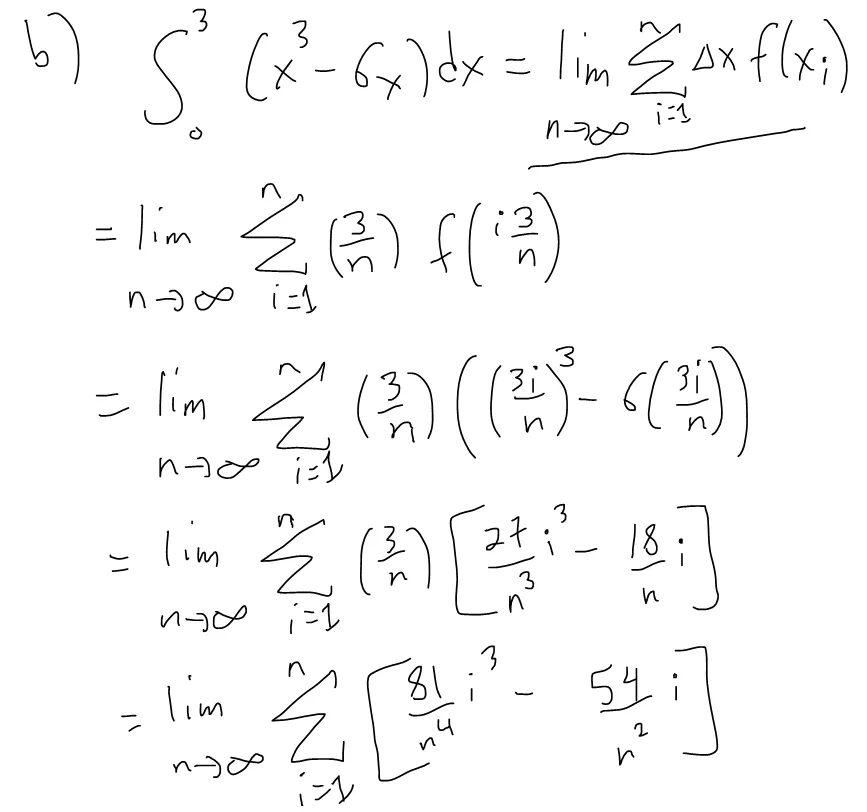 b) ∫₀³ (x³ - 6x) dx = lim_{n→∞} Σ_{i=1}^{n} Δx f(x_i)
= lim_{n→∞} Σ_{i=1}^{n} (3/n) f(i 3/n)
= lim_{n→∞} Σ_{i=1}^{n} (3/n) ((3i/n)³ - 6(3i/n))
= lim_{n→∞} Σ_{i=1}^{n} (3/n) [27/n³ i³ - 18/n i]
= lim_{n→∞} Σ_{i=1}^{n} [81/n⁴ i³ - 54/n² i]